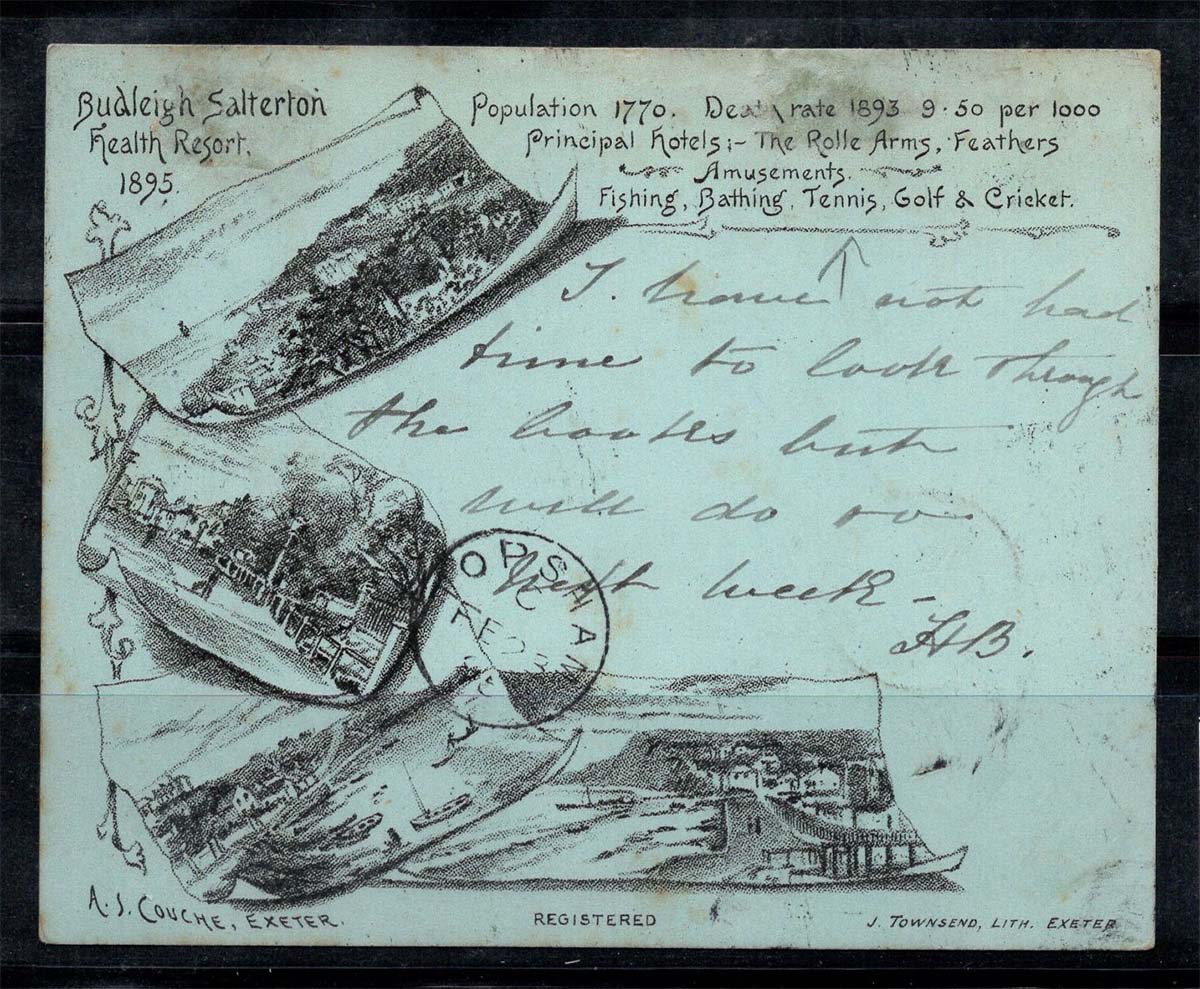 Budleigh Salterton
Health Resort.
1895.
Population 1770. Death rate 1893 9·50 per 1000
Principal Hotels:- The Rolle Arms, Feathers
Amusements.
Fishing, Bathing, Tennis, Golf & Cricket.
I have not had
time to look through
the books but
will do so
next week -
HB.
TOPSHAM
C
FE
A. S. COUCHE, EXETER.
REGISTERED
J. TOWNSEND, LITH. EXETER